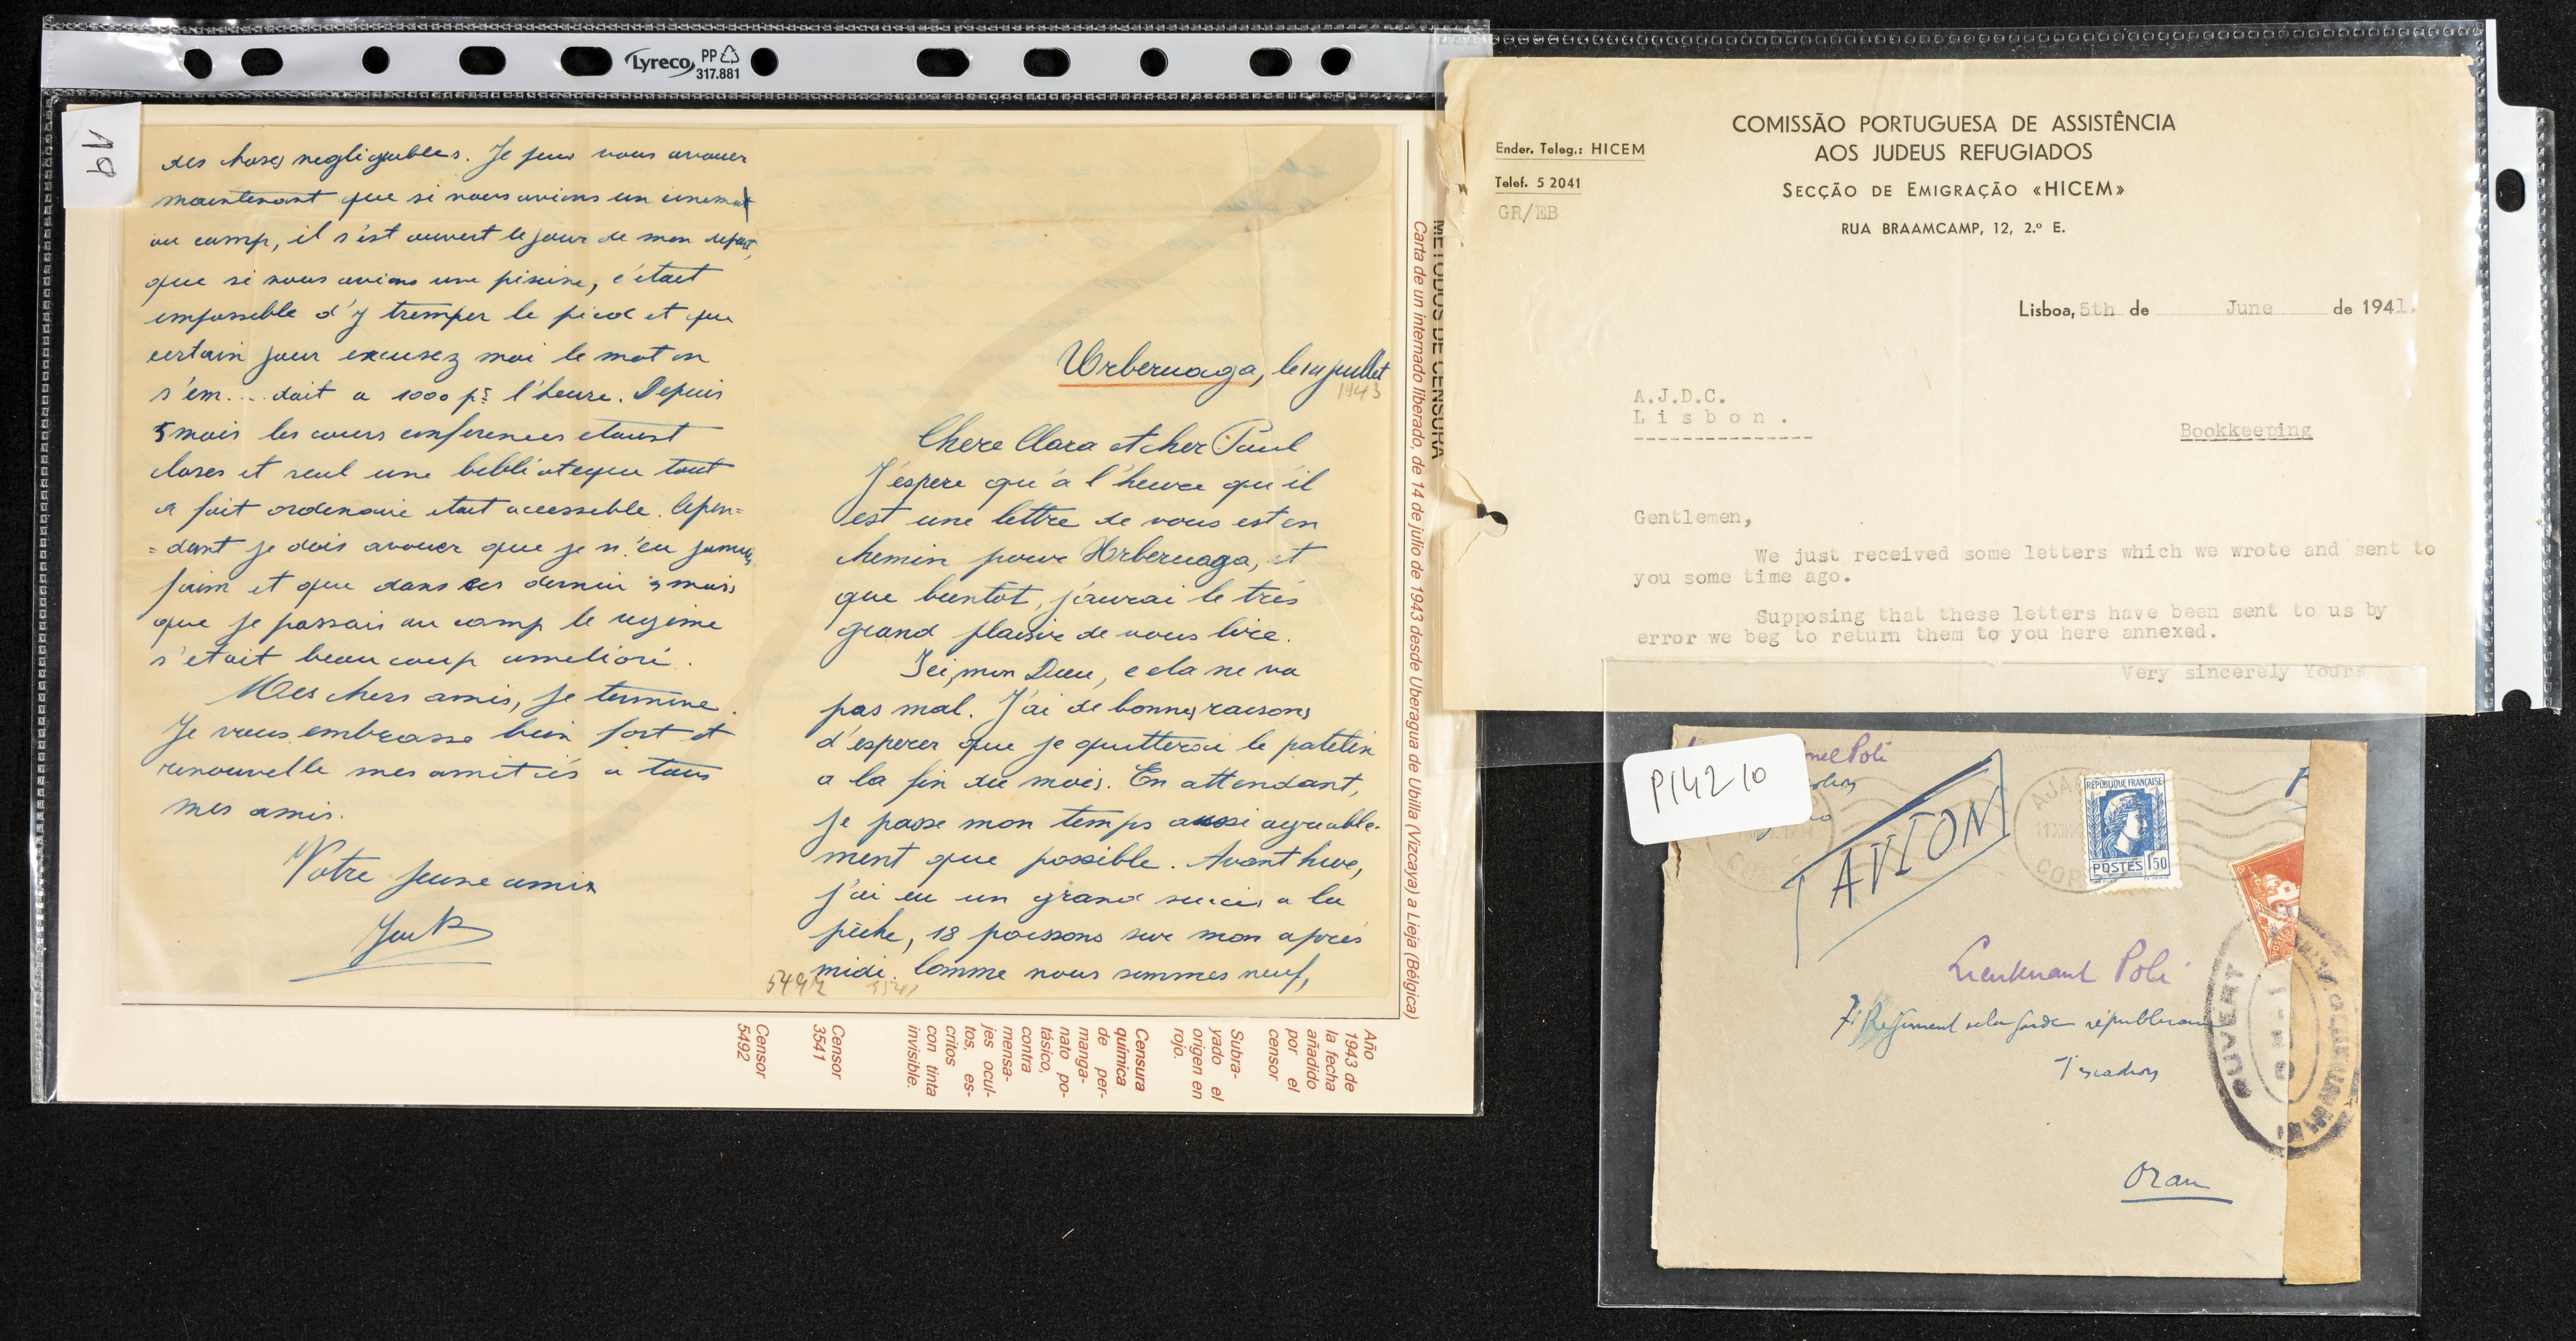 Lyreco
PP
317.881
19
des choses negligeables. Je peux vous avouer
maintenant que si nous avions un cinema
au camp, il s'est ouvert le jour de mon depart,
que si nous avions une piscine, c'était
impossible d'y tremper le pied et que
certain jour excusez moi le mot on
s'em....dait a 1000 pr l'heure. Depuis
5 mois les cours conferences etaient
closes et seul une biblioteque tout
a fait ordenaire etait accessible. Cepen=
=dant je dois avouer que je n'eu jamais
faim et que dans ces dernier 3 mois
que je passais au camp le regime
s'etait beaucoup amelioré.
Mes chers amis, je termine.
Je vous embrasse bien fort et
renouvelle mes amitiés a tous
mes amis.
Votre jeune ami
Urberuaga, le 14 juillet
1943
Chere Clara et cher Paul
J'éspere qu'à l'heure qu'il
est une lettre de vous est en
chemin pour Urberuaga, et
que bientôt, j'aurai le très
grand plaisir de vous lire.
Ici, mon Dieu, cela ne va
pas mal. J'ai de bonnes raisons
d'esperer que je quitterai le patelin
a la fin du mois. En attendant,
je passe mon temps aussi agreable-
ment que possible. Avant hier,
j'ai eu un grand succes a la
pêche, 18 poissons sur mon après
midi. Comme nous sommes neuf,
5492
3541
METODOS DE CENSURA
Carta de un internado liberado, de 14 de julio de 1943 desde Uberagua de Ubilla (Vizcaya) a Lieja (Bélgica)
Año
1943 de
la fecha
añadido
por el
censor
Subra-
yado el
origen en
rojo.
Censura
química
de per-
manga-
nato po-
tásico,
contra
mensa-
jes ocul-
tos, es-
critos
con tinta
invisible.
Censor
3541
Censor
5492
COMISSÃO PORTUGUESA DE ASSISTÊNCIA
AOS JUDEUS REFUGIADOS
SECÇÃO DE EMIGRAÇÃO «HICEM»
RUA BRAAMCAMP, 12, 2.º E.
Ender. Teleg.: HICEM
Telef. 5 2041
GR/EB
Lisboa, 5th de June de 1941.
A.J.D.C.
Lisbon.
Bookkeeping
Gentlemen,
We just received some letters which we wrote and sent to
you some time ago.
Supposing that these letters have been sent to us by
error we beg to return them to you here annexed.
Very sincerely Yours
P142 10
nel Poli
AVION
AJA
COR
REPUBLIQUE FRANÇAISE
POSTES 1F50
Lieutenant Poli
7e Regiment de la garde républicaine
Oran
OUVERT